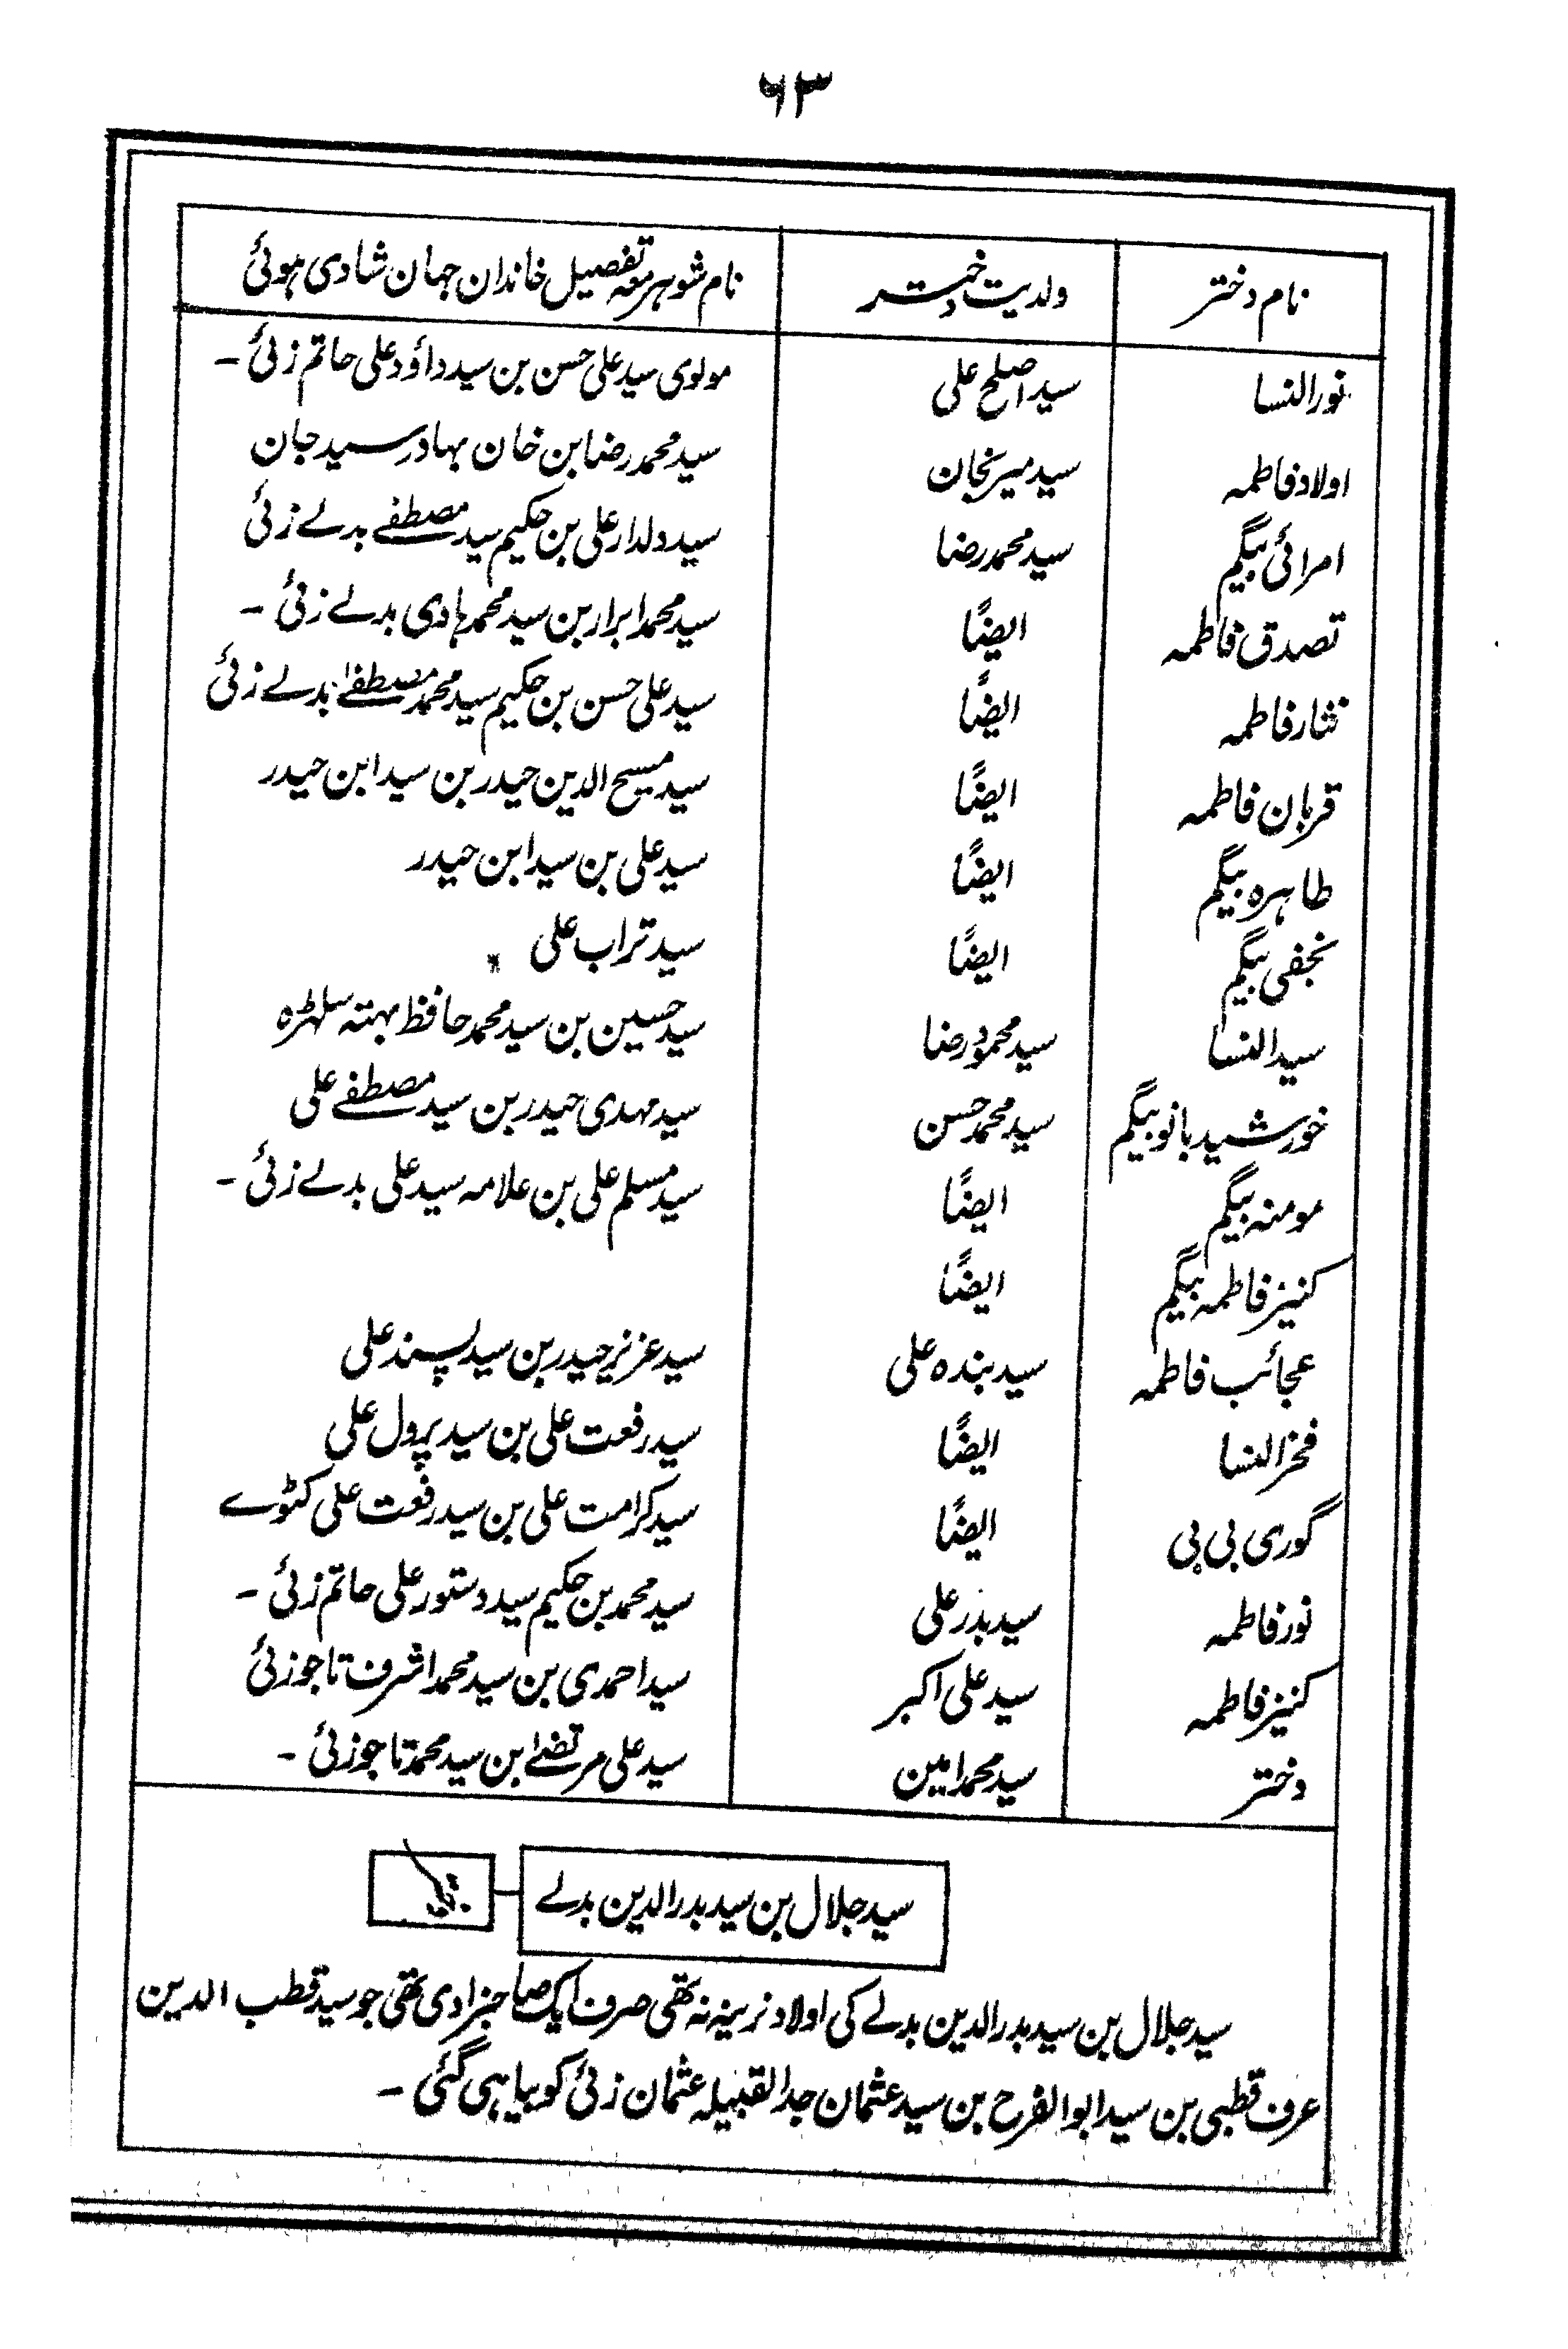 ۶۳
نام دختر ولدیت دختر نام شوہر معہ تفصیل خاندان جہان شادی ہوئی
نورالنسا سید اصلح علی مولوی سید علی حسن بن سید داؤد علی حاتم زئی ۔
اولاد فاطمہ سید میر نجان سید محمد رضا ابن خان بہادر سید جان
امرائی بیگم سید محمد رضا سید دلدار علی بن حکیم سید مصطفے بدلے زئی
تصدق فاطمہ ایضًا سید محمد ابرار بن سید محمد ہادی بدلے زئی ۔
نثار فاطمہ ایضًا سید علی حسن بن حکیم سید محمد مصطفےٰ بدلے زئی
قربان فاطمہ ایضًا سید مسیح الدین حیدر بن سید ابن حیدر
طاہرہ بیگم ایضًا سید علی بن سید ابن حیدر
نجفی بیگم ایضًا سید تراب علی
سید النسا سید محمود رضا سید حسین بن سید محمد حافظ بہتہ سلہڑہ
خورشید بانو بیگم سید محمد حسن سید مہدی حیدر بن سید مصطفے علی
مومنہ بیگم ایضًا سید مسلم علی بن علامہ سید علی بدلے زئی ۔
کنیز فاطمہ بیگم ایضًا
عجائب فاطمہ سید بندہ علی سید عزیز حیدر بن سید پسند علی
فخر النسا ایضًا سید رفعت علی بن سید پرول علی
گوری بی بی ایضًا سید کرامت علی بن سید رفعت علی کٹوے
نور فاطمہ سید بدر علی سید محمد بن حکیم سید دستور علی حاتم زئی ۔
کنیز فاطمہ سید علی اکبر سید احمدی بن سید محمد اشرف تاجوزئی
دختر سید محمد امین سید علی مرتضےٰ ابن سید محمد تاجوزئی ۔
سید جلال بن سید بدرالدین بدلے
سید جلال بن سید بدرالدین بدلے کی اولاد نرینہ نہ تھی صرف ایک صاحبزادی تھی جو سید قطب الدین
عرف قطبی بن سید ابوالفرح بن سید عثمان جد القبیلہ عثمان زئی کو بیاہی گئی ۔